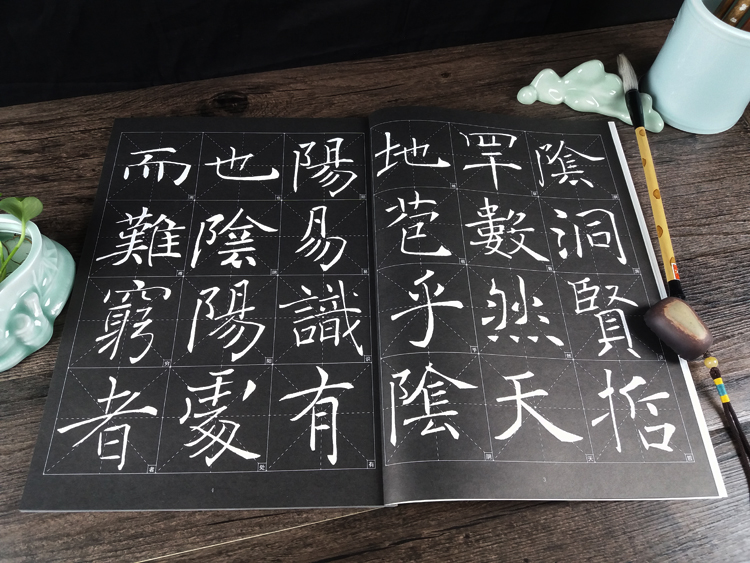 陰洞賢哲
罕數然天
地苞乎陰
陽易識有
也陰陽處
而難窮者